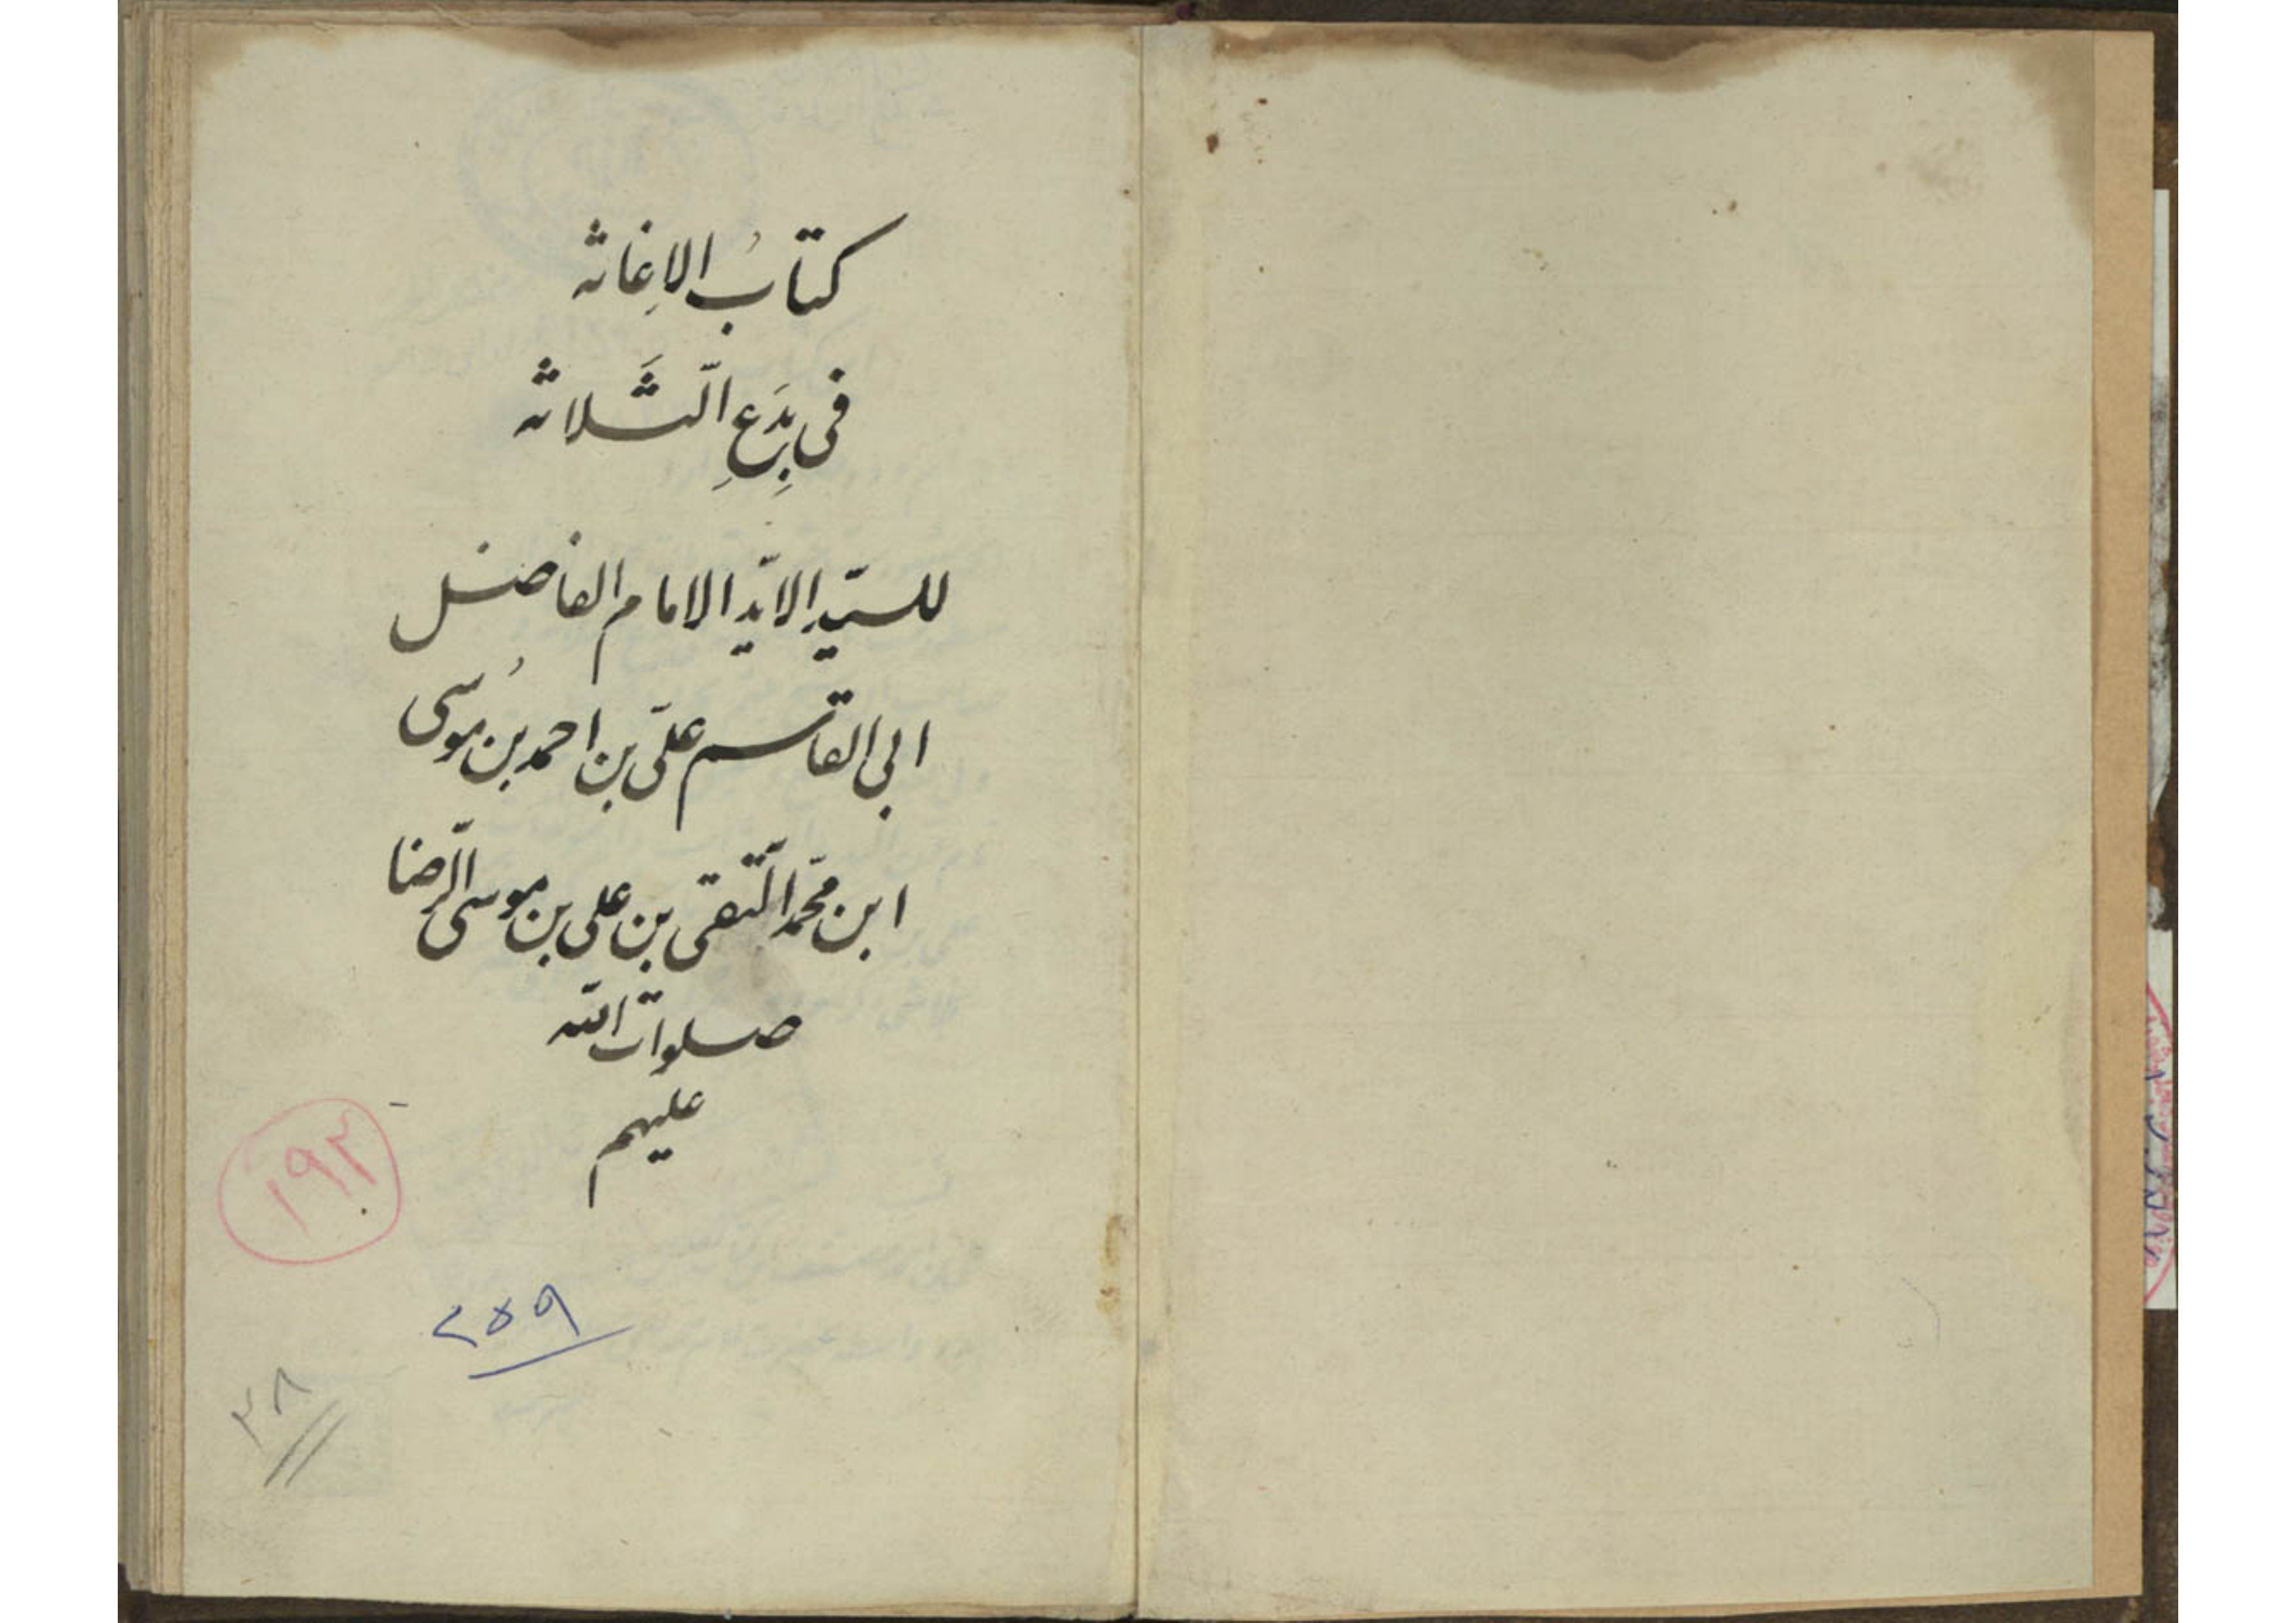 كتابُ الاِغاثه
فى بِدَعِ الثَّلاثه
للسيّد الايّد الامام الفاضل
ابى القاسم علىّ بن احمد بن مُوسى
ابن محمّد التّقى بن على بن موسى الرّضا
صلوات الله
عليهم
١٩٢
٢٥٩
٣٨